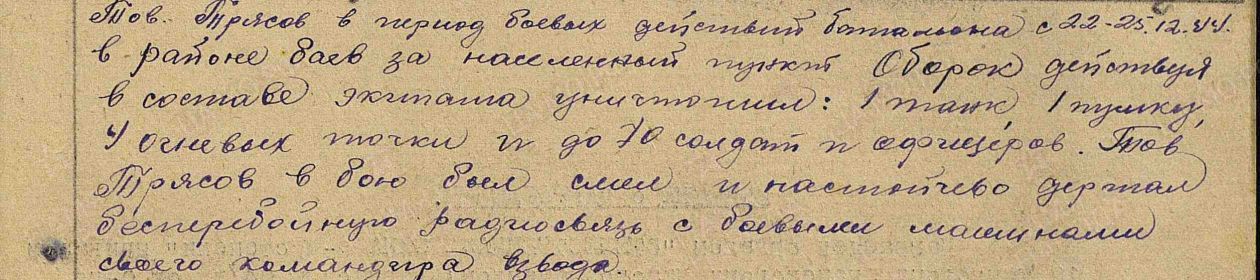 Тов. Трясов в период боевых действий батальона с 22-25.12.44.
в районе баев за населенный пункт Оборок действуя
в составе экипажа уничтожил: 1 танк, 1 пушку,
4 огневых точки и до 70 солдат и офицеров. Тов
Трясов в бою был смел и настойчево держал
бесперебойную радиосвязь с боевыми машинами
своего командира взвода.